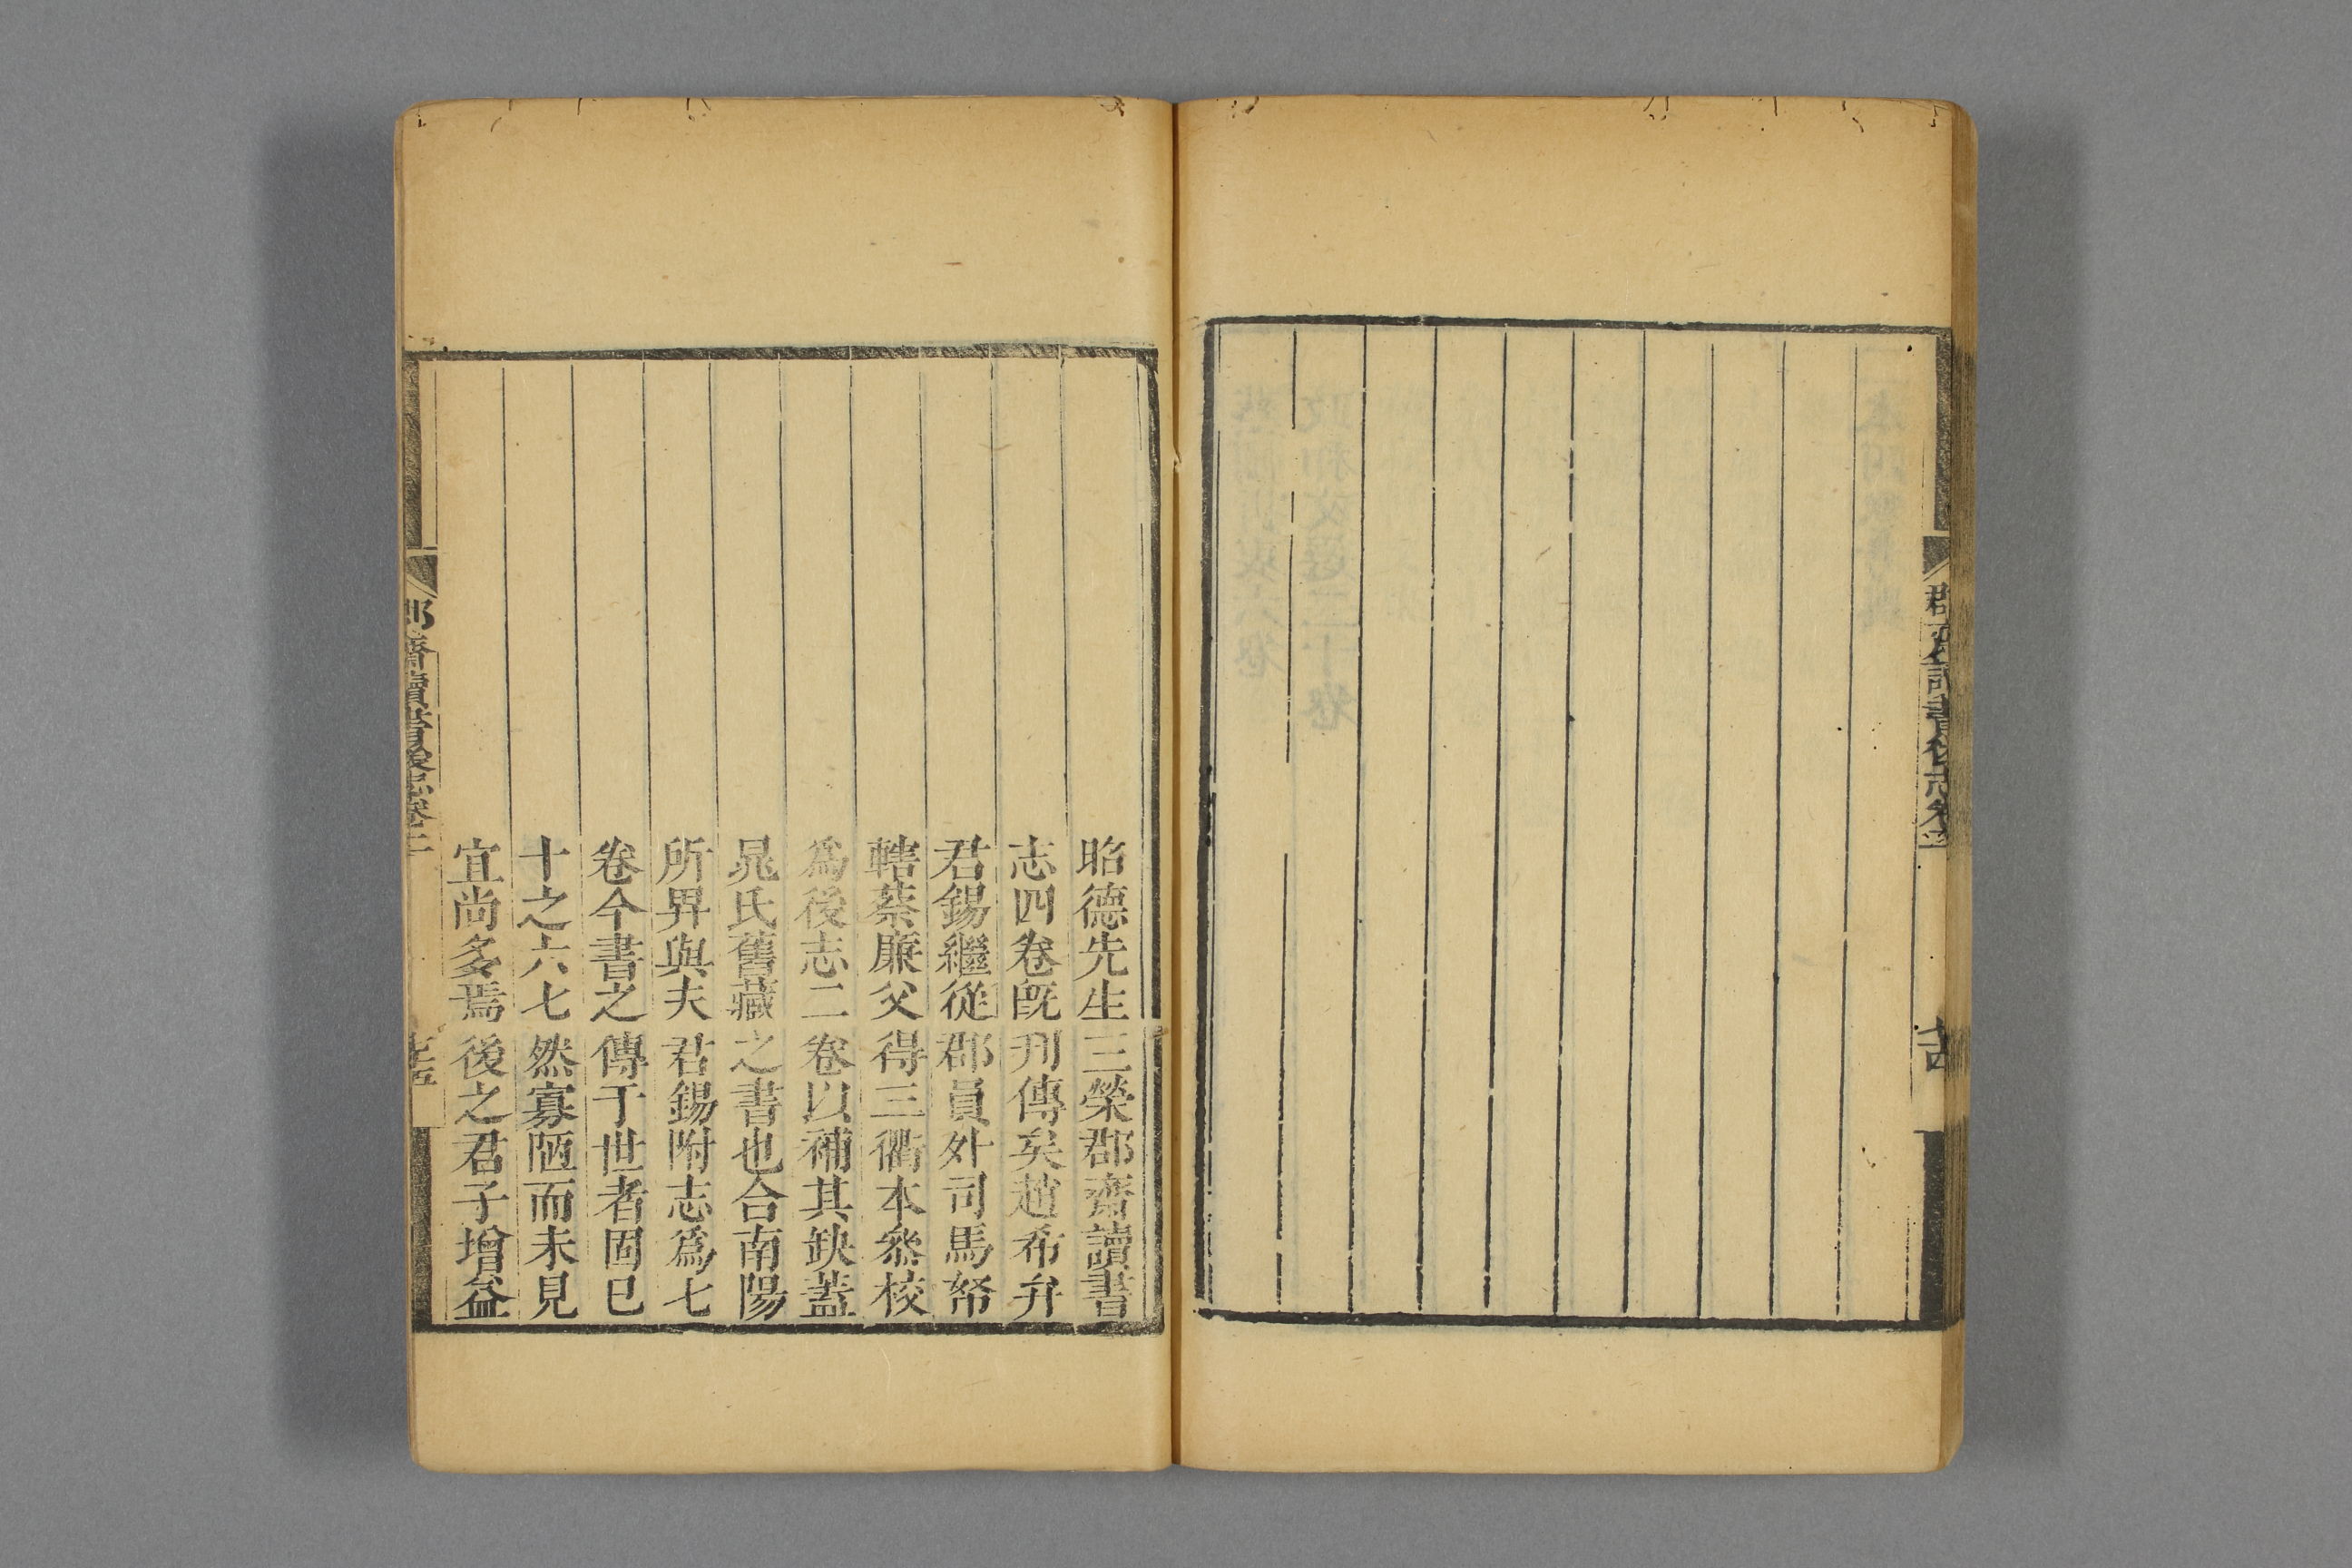 昭德先生三榮郡齋讀書
志四卷旣刋傳矣趙希弁
君錫繼從郡員外司馬帑
轄蔡廉父得三衢本叅校
爲後志二卷以補其缺蓋
晁氏舊藏之書也合南陽
所畀與夫君錫附志爲七
卷今書之傳于世者固已
十之六七然寡陋而未見
宜尚多焉後之君子增益